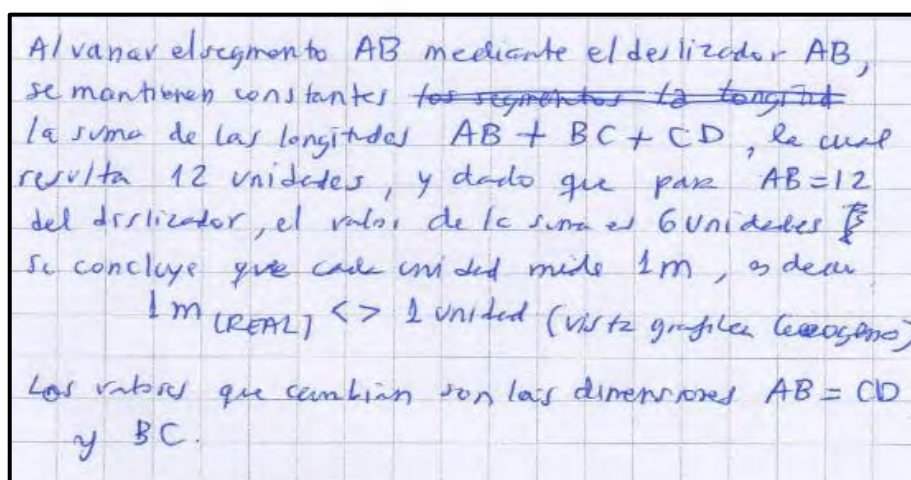 Al variar el segmento AB mediante el deslizador AB,
se mantienen constantes los segmentos la longitud
la suma de las longitudes AB + BC + CD, la cual
resulta 12 unidades, y dado que para AB=12
del deslizador, el valor de la suma es 6 unidades
se concluye que cada unidad mide 1m, es decir
1m (REAL) <> 1 unidad (vista grafica Geogebra)
Los valores que cambian son las dimensiones AB = CD
y BC.